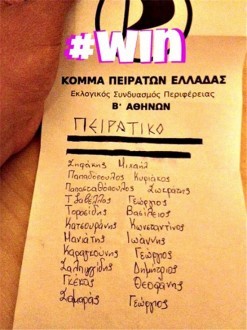 #win
ΚΟΜΜΑ ΠΕΙΡΑΤΩΝ ΕΛΛΑΔΑΣ
Εκλογικός Συνδυασμός Περιφέρειας
Β' ΑΘΗΝΩΝ
ΠΕΙΡΑΤΙΚΟ
Σηφάκης Μιχαήλ
Παπαδόπουλος Κυριάκος
Παπασταθόπουλος Σωτήρης
Τζαβέλλας Γεώργιος
Τοροσίδης Βασίλειος
Κατσουράνης Κωνσταντίνος
Μανιάτης Ιωάννης
Καραγκούνης Γεώργιος
Σαλπιγγίδης Δημήτριος
Γκέκας Θεοφάνης
Σαμαράς Γεώργιος